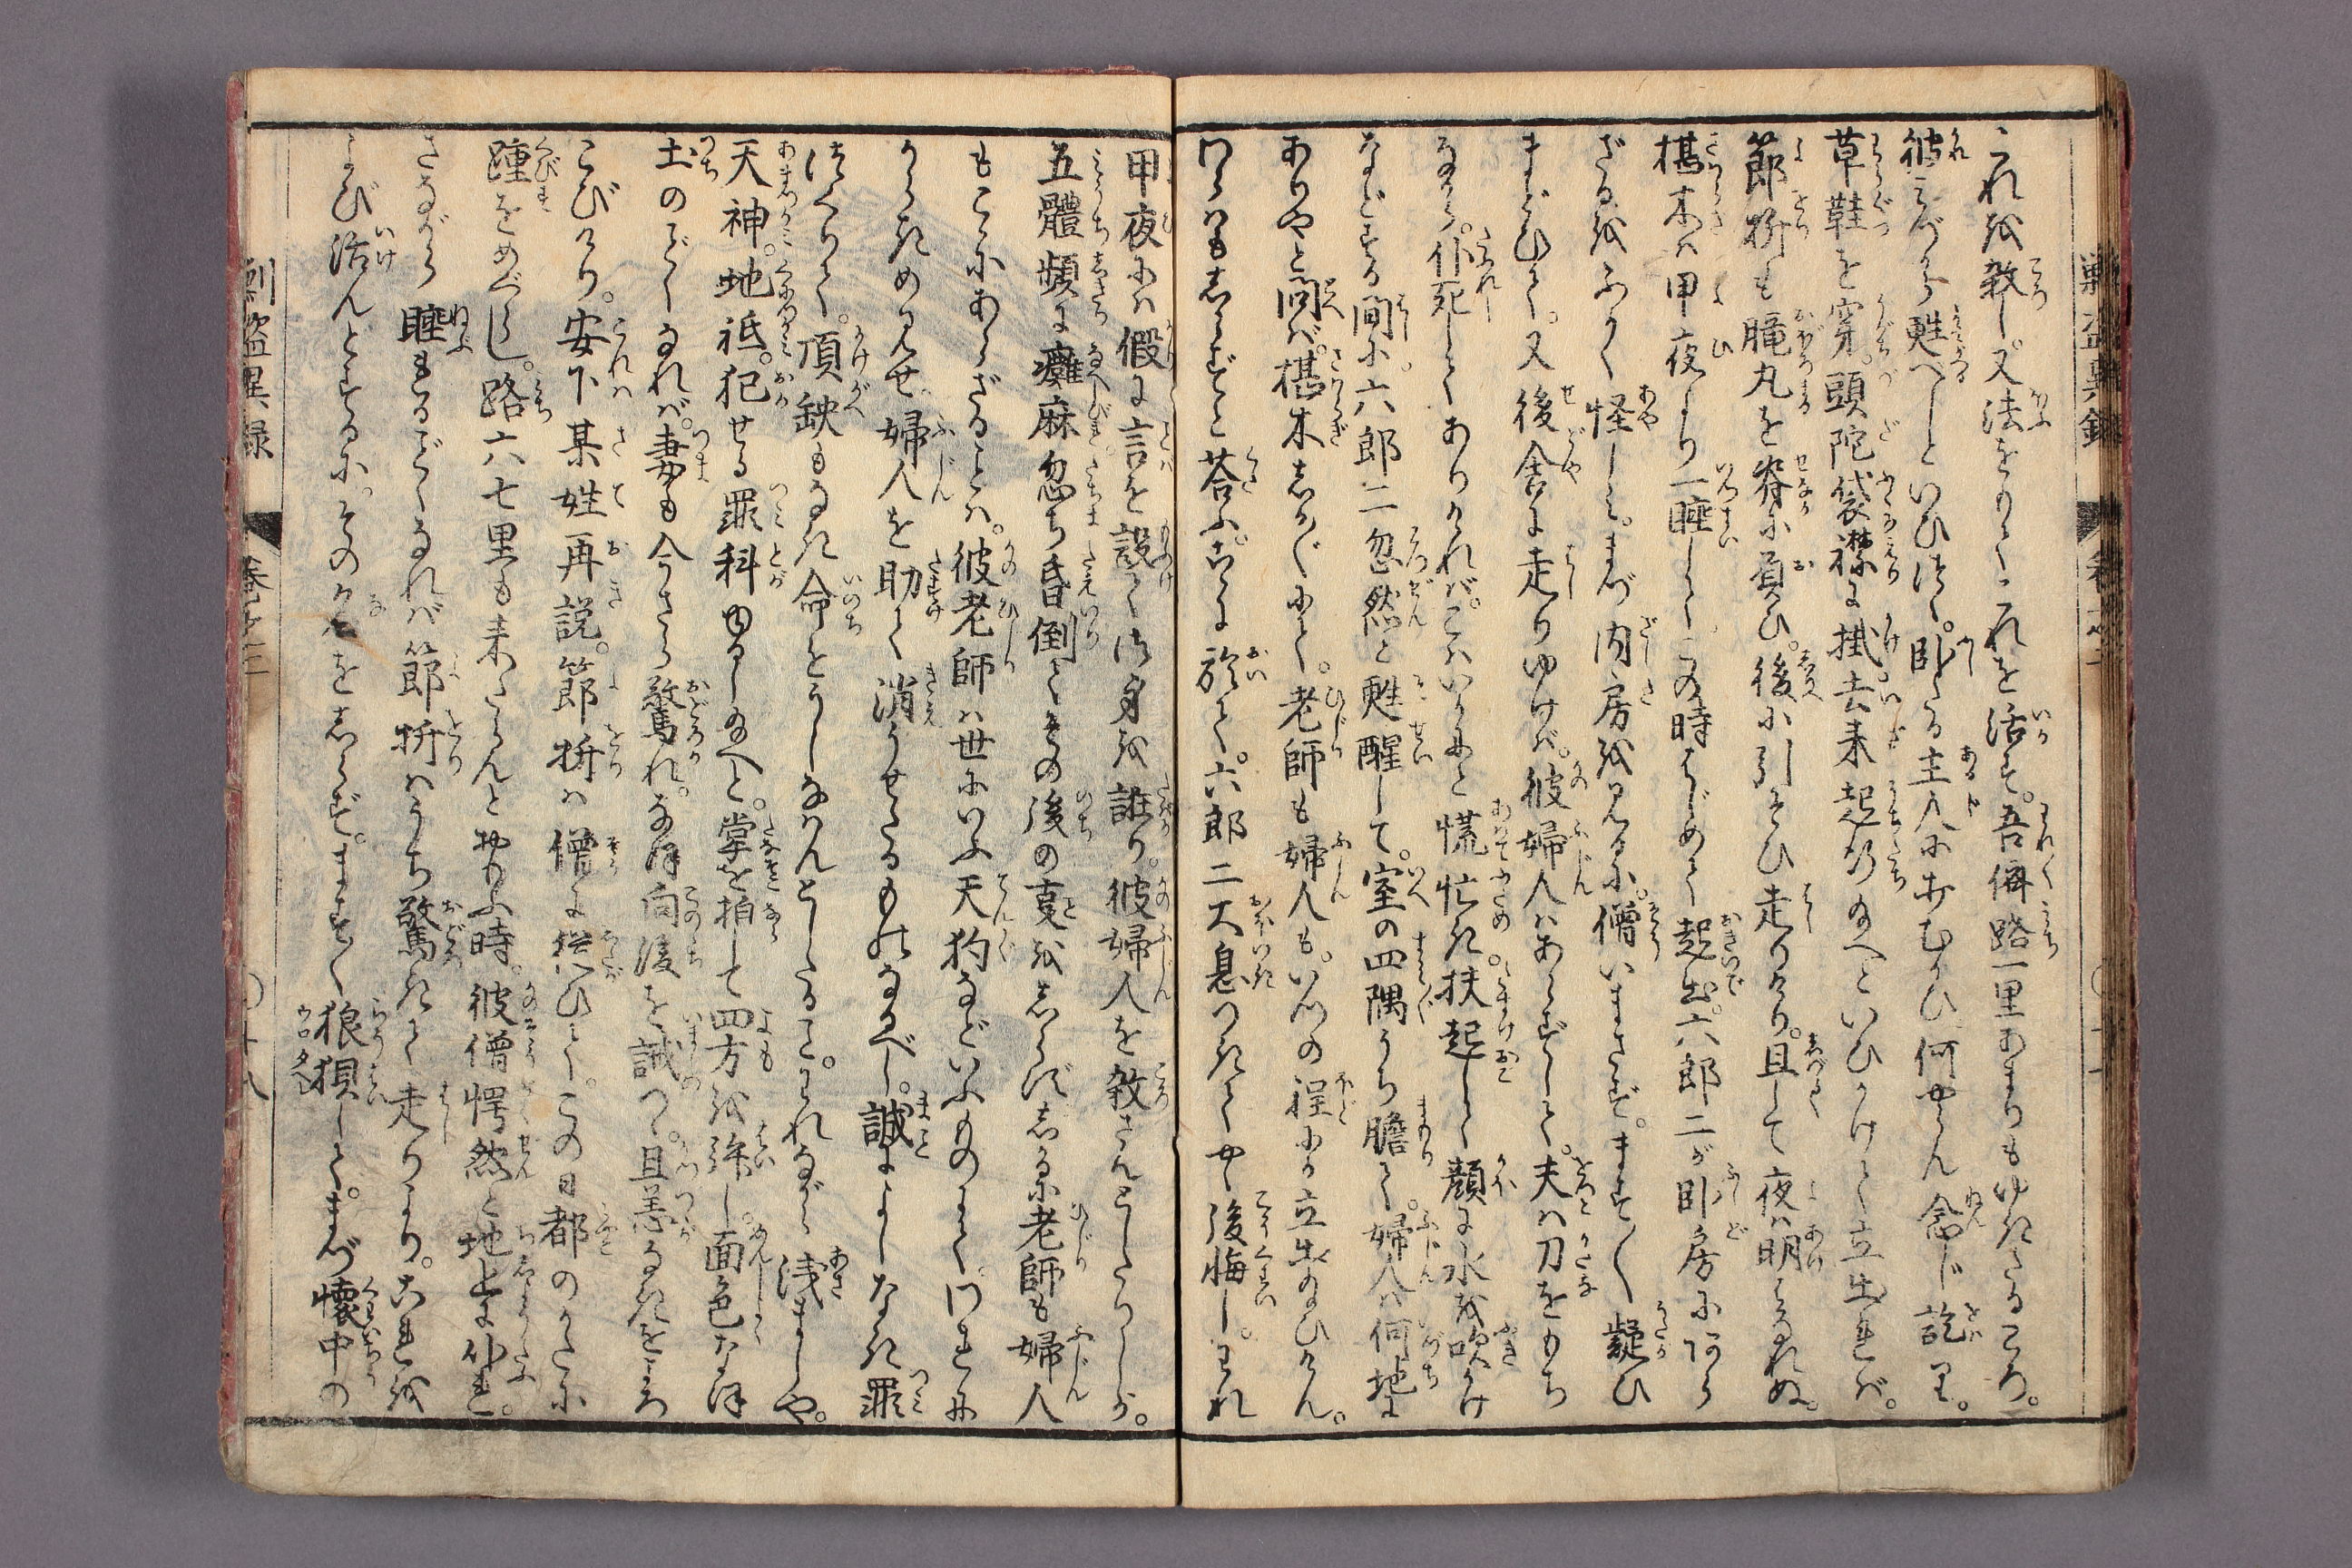 これを殺し。又法をもてこれを活す。吾儕路一里あまりもゆきたるころ。
彼みづから甦へしといひつゝ。臥たる主人にうちむかひ。何やらん念じ訖り。
草鞋を穿。頭陀袋襟に掛。去来起行給へといひかけて立出れば。
節折も朧丸を脊に負ひ。後に引そひ走りけり。且して夜は明はなれぬ。
椹木は甲夜より一睡して。この時はじめて起出。六郎二が臥房にあら
ざるをふかく怪しみ。まづ内房を見るに。僧いまさず。ます〳〵疑ひ
まどひて。又後舎に走りゆけば。彼婦人はあらずして。夫は刀をもち
ながら。仆死してありければ。こはいかにと慌忙き。扶起して顔に水を吹かけ
などする間に。六郎二忽然と甦醒して。室の四隅うち瞻て。婦人は何地に
ありやと問ば。椹木しか〴〵にて。老師も婦人も。いつの程にか立出給ひけん。
わらはもしらずと荅ふ。こゝに於て。六郎二大息つきてやゝ後悔し。われ
甲夜には假に言を設て御身を誑り。彼婦人を殺さんとしたりしが。
五體頻に癱麻忽ち昏倒てその後の叓をしらずしかるに老師も婦人
もこゝにあらざることは。彼老師は世にいふ天狗などいふものにて。わざに
かきためみせ婦人を助て消うせたるものなるべし。誠によしなき罪
つくりて。頂缺もなき命をうしなはんとしたること。われながら浅ましや。
天神。地祇。犯せる罪科ゆるし給へと。掌を拍して四方を拜し。面色なほ
土のごとくなれば。妻も今さら驚れ。なほ向後を誡つゝ。且恙なきをよろ
こびけり。安下某姓再説。節折は僧に従ひて。この日都のかたに
踵をめぐらし。路六七里も来つらんとおもふ時。彼僧愕然と地上に仆れ。
さながら睡れるごとくなれば節折はうち驚きて走りより。これを
よび活んとするに。その名をしらず。ます〳〵狼狽して。まづ懐中の
剿盗異録
巻之三
〇十八